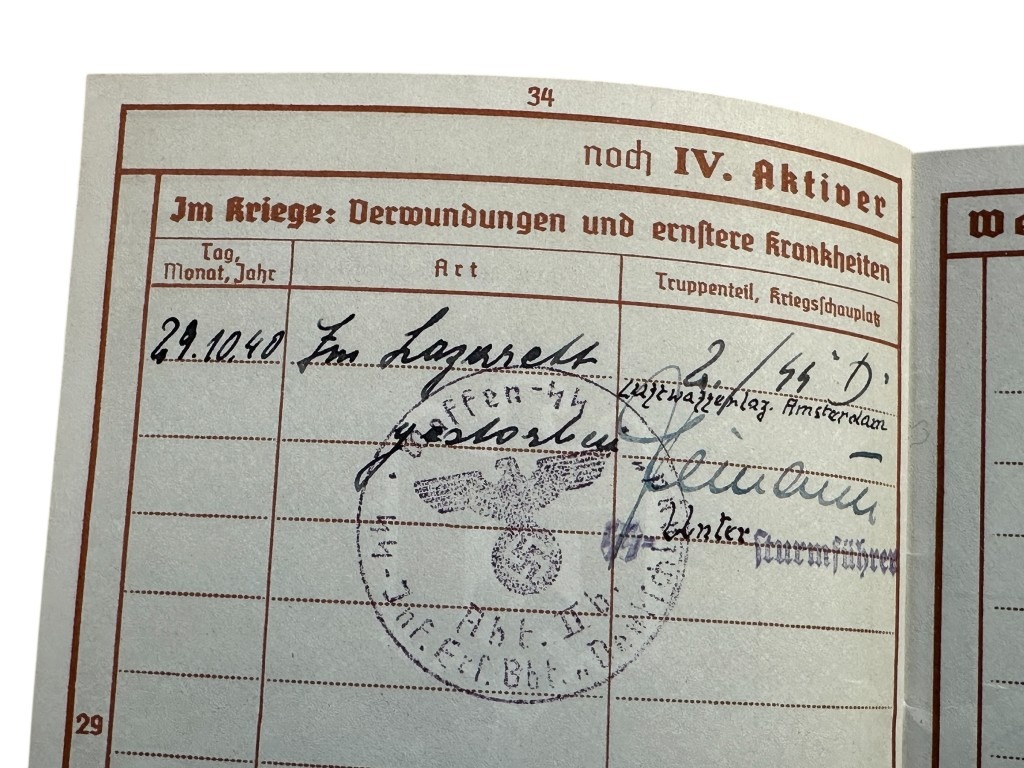 34
noch IV. Aktiver
Im Kriege: Verwundungen und ernstere Krankheiten
Tag,
Monat, Jahr
Art
Truppenteil, Kriegsschauplatz
29.10.40 Im Lazarett 2./SS "D"
Luftwaffenlaz. Amsterdam
gestorben
SS-Untersturmführer
Waffen-SS
Abt. II b
SS-Inf. Ers. Btl. „Deutschland"
29
We